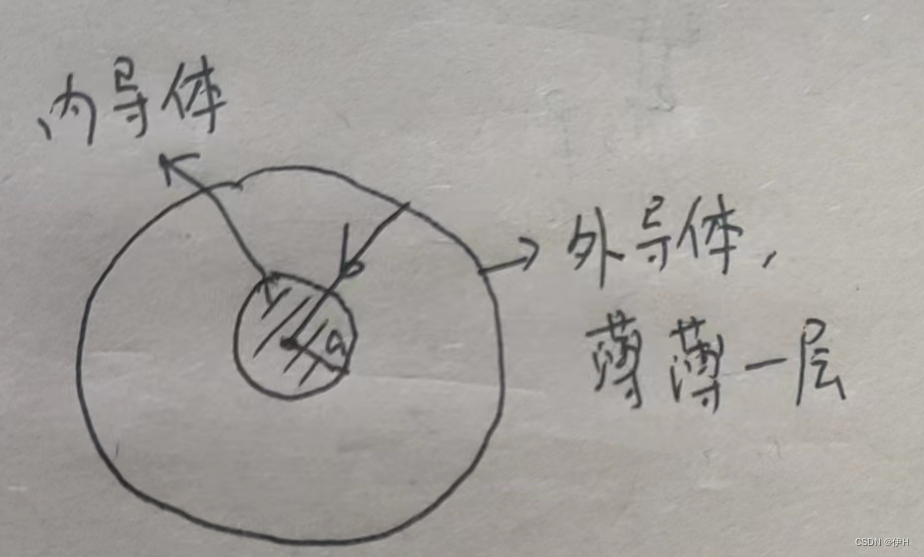 内导体
外导体,
薄薄一层
b
a
CSDN @伊H